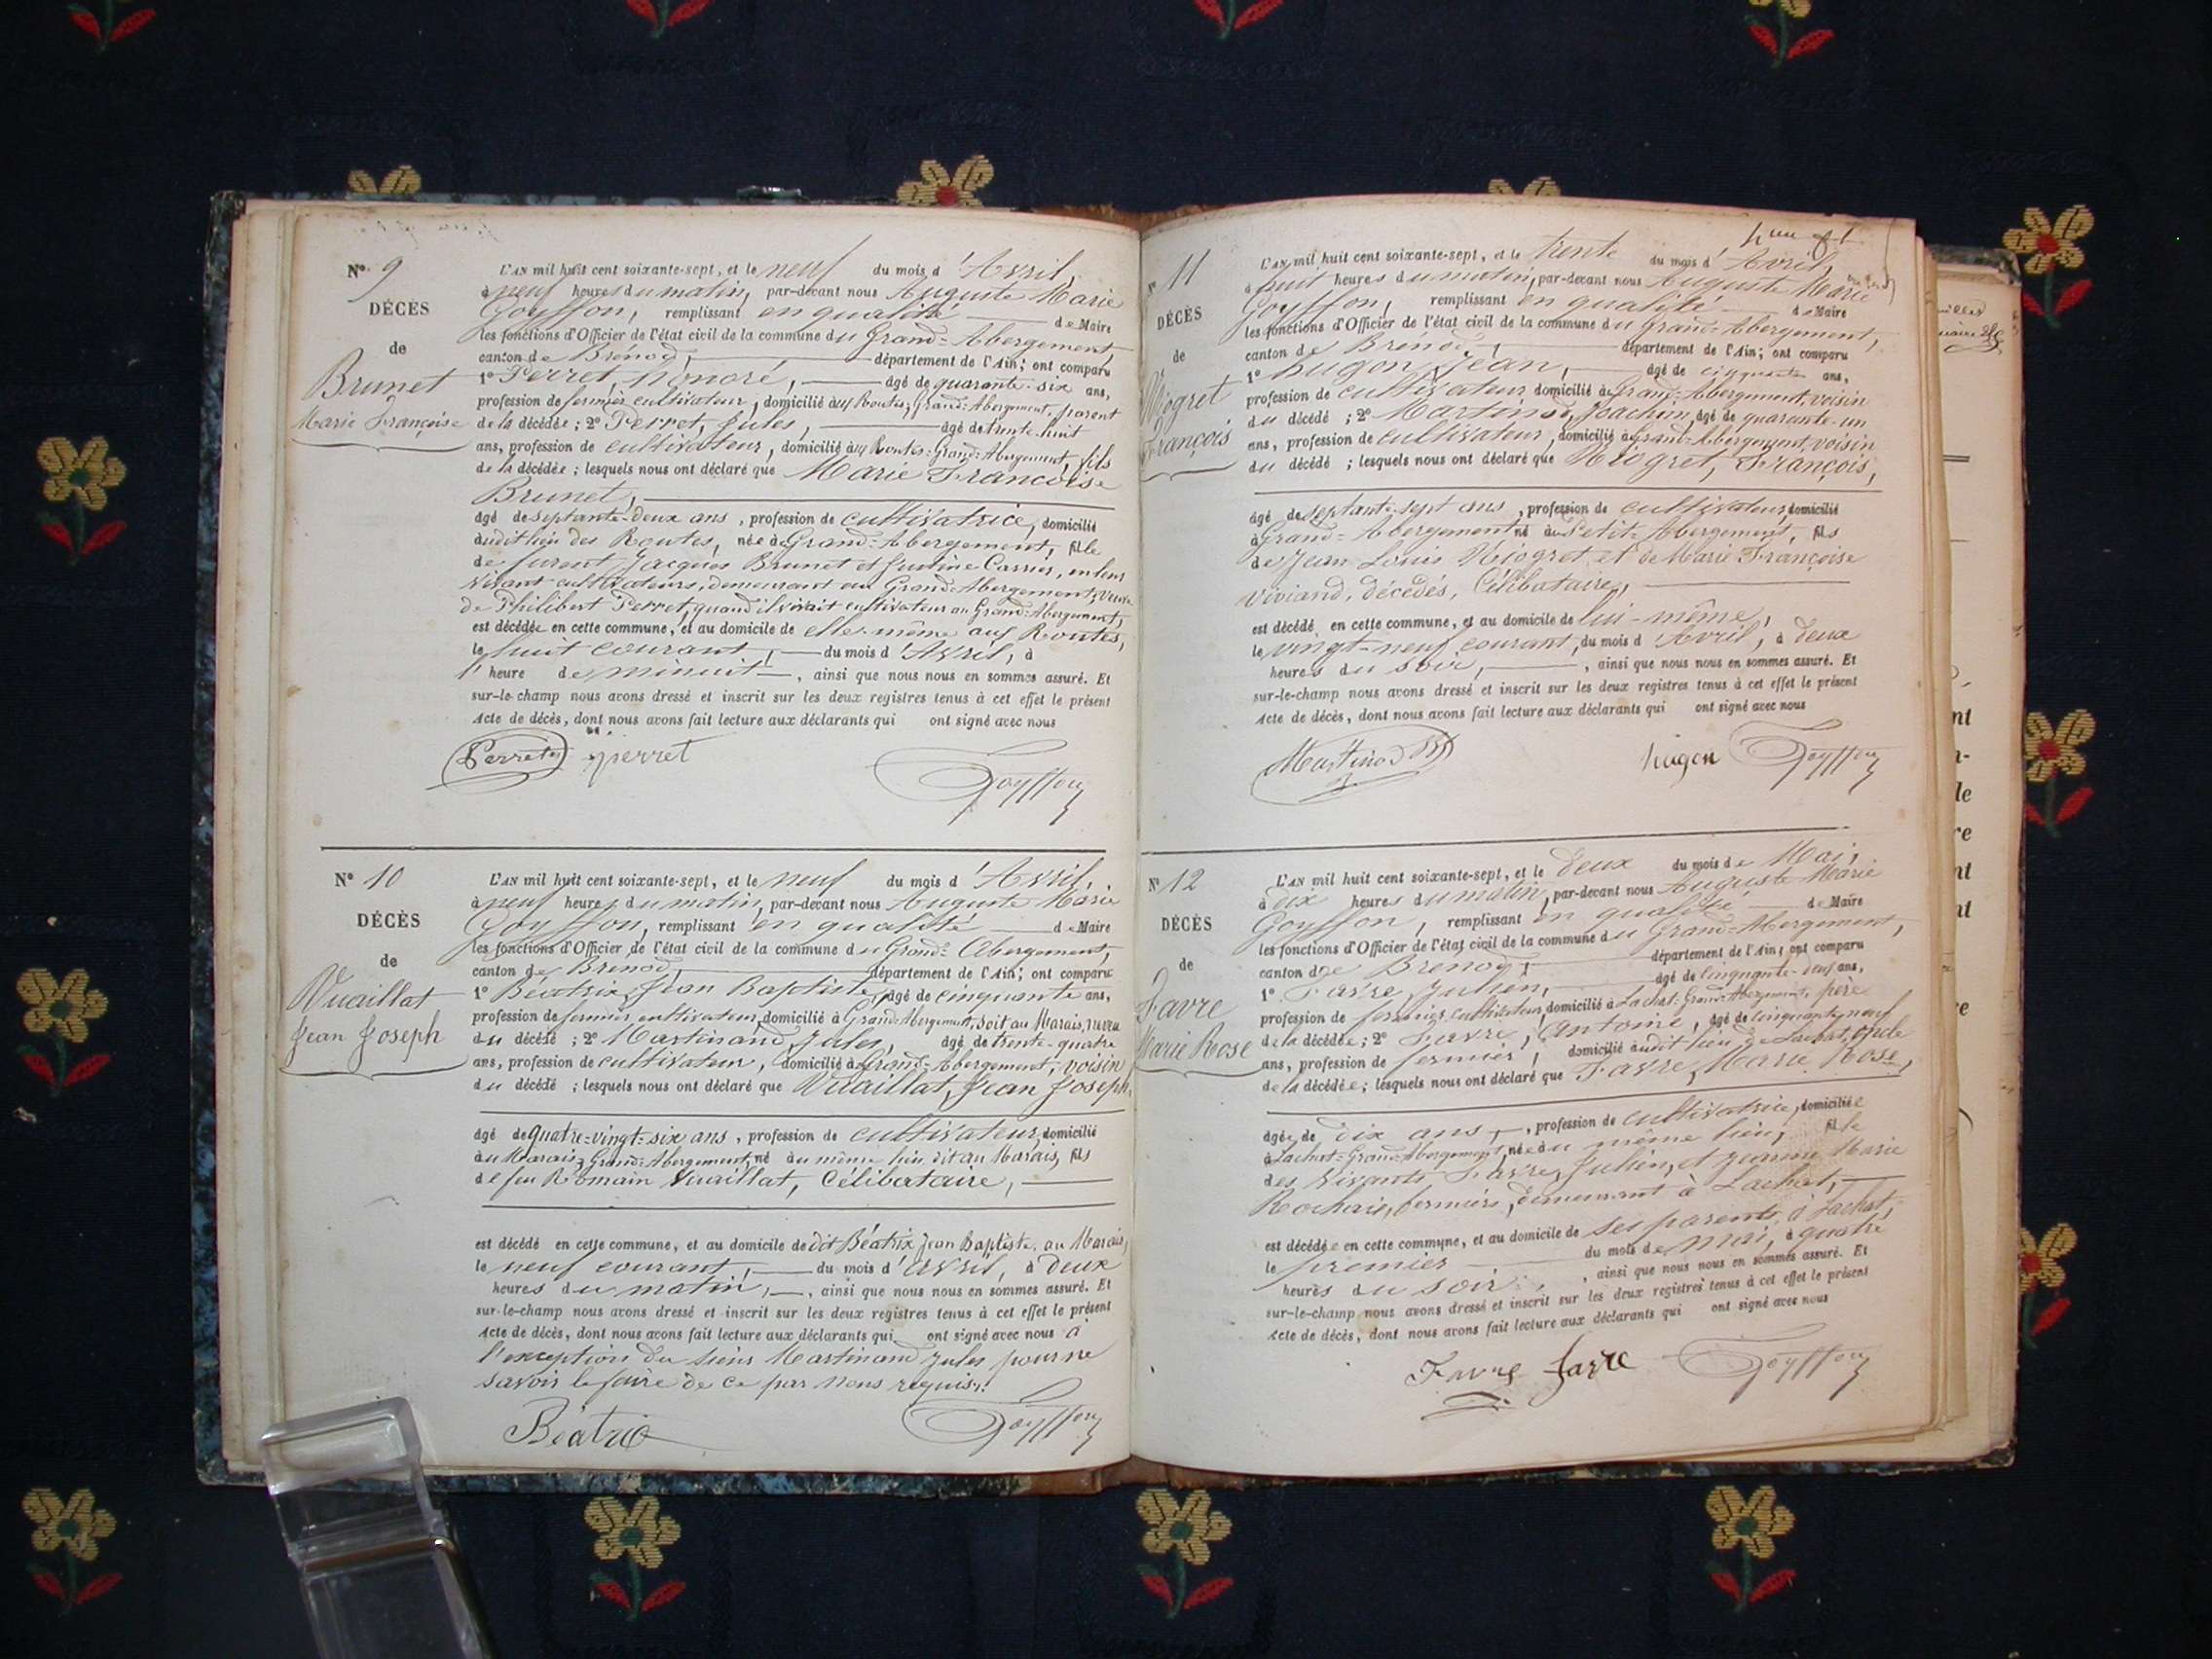 N° 9
DÉCÈS
de
Brunet
Marie Françoise
L'AN mil huit cent soixante-sept, et le neuf du mois d'Avril,
à neuf heures du matin, par-devant nous Auguste Marie
Goyffon, remplissant en qualité de Maire
les fonctions d'Officier de l'état civil de la commune du Grand-Abergement,
canton de Brénod, département de l'Ain; ont comparu
1° Perret, honoré, âgé de quarante-six ans,
profession de fermier cultivateur, domicilié aux Routes, Grand-Abergement, parent
de la décédée; 2° Perret, Jules, âgé de trente-huit
ans, profession de cultivateur, domicilié aux Routes-Grand-Abergement, fils
de la décédée; lesquels nous ont déclaré que Marie Françoise
Brunet,
âgé de septante-deux ans, profession de cultivatrice, domicilié
audit lieu des Routes, née à Grand-Abergement, fille
de furent Jacques Brunet et Justine Carrier, en leur
vivant cultivateurs, demeurant au Grand-Abergement, veuve
de Philibert Perret, quand il vivait cultivateur au Grand-Abergement,
est décédée en cette commune, et au domicile de elle-même aux Routes,
le huit courant, du mois d'Avril, à
l'heure de minuit, ainsi que nous nous en sommes assuré. Et
sur-le-champ nous avons dressé et inscrit sur les deux registres tenus à cet effet le présent
Acte de décès, dont nous avons fait lecture aux déclarants qui ont signé avec nous
Perret perret Goyffon
N° 10
DÉCÈS
de
Vuaillat
Jean Joseph
L'AN mil huit cent soixante-sept, et le neuf du mois d'Avril,
à neuf heures du matin, par-devant nous Auguste Marie
Goyffon, remplissant en qualité de Maire
les fonctions d'Officier de l'état civil de la commune du Grand-Abergement,
canton de Brenod, département de l'Ain; ont comparu
1° Béatrix, Jean Baptiste, âgé de cinquante ans,
profession de fermier cultivateur, domicilié à Grand-Abergement, soit au Marais, neveu
du décédé; 2° Martinand, Jules, âgé de trente-quatre
ans, profession de cultivateur, domicilié à Grand-Abergement, voisin
du décédé; lesquels nous ont déclaré que Vuaillat, Jean Joseph,
âgé de quatre-vingt-six ans, profession de cultivateur, domicilié
au Marais, Grand-Abergement, né au même lieu dit au Marais, fils
de feu Romain Vuaillat, Célibataire,
est décédé en cette commune, et au domicile de dit Béatrix Jean Baptiste, au Marais,
le neuf courant, du mois d'avril, à deux
heures du matin, ainsi que nous nous en sommes assuré. Et
sur-le-champ nous avons dressé et inscrit sur les deux registres tenus à cet effet le présent
Acte de décès, dont nous avons fait lecture aux déclarants qui ont signé avec nous à
l'exception du sieur Martinand Jules pour ne
savoir le faire de ce par nous requis.
Béatrix Goyffon
N° 11
DÉCÈS
de
Niogret
François
L'AN mil huit cent soixante-sept, et le trente du mois d'Avril,
à huit heures du matin, par-devant nous Auguste Marie
Goyffon, remplissant en qualité de Maire
les fonctions d'Officier de l'état civil de la commune du Grand-Abergement,
canton de Brénod, département de l'Ain; ont comparu
1° hugon, Jean, âgé de cinquante ans,
profession de cultivateur, domicilié à Grand-Abergement, voisin
du décédé; 2° Martinod, Joachim, âgé de quarante-un
ans, profession de cultivateur, domicilié à Grand-Abergement, voisin
du décédé; lesquels nous ont déclaré que Niogret, François,
âgé de septante-sept ans, profession de cultivateur, domicilié
à Grand-Abergement né au Petit-Abergement, fils
de Jean Louis Niogret et de Marie Françoise
Viviand, décédés, Célibataire,
est décédé en cette commune, et au domicile de lui-même,
le vingt-neuf courant, du mois d'Avril, à deux
heures du soir, ainsi que nous nous en sommes assuré. Et
sur-le-champ nous avons dressé et inscrit sur les deux registres tenus à cet effet le présent
Acte de décès, dont nous avons fait lecture aux déclarants qui ont signé avec nous
Martinod hugon Goyffon
N° 12
DÉCÈS
de
Favre
Marie Rose
L'AN mil huit cent soixante-sept, et le deux du mois de Mai,
à dix heures du matin, par-devant nous Auguste Marie
Goyffon, remplissant en qualité de Maire
les fonctions d'Officier de l'état civil de la commune du Grand-Abergement,
canton de Brenod, département de l'Ain; ont comparu
1° Favre, Julien, âgé de cinquante-deux ans,
profession de fermier cultivateur, domicilié à Lachat-Grand-Abergement, père
de la décédée; 2° Favre, Antoine, âgé de cinquante-neuf
ans, profession de fermier, domicilié audit lieu de Lachat, oncle
de la décédée; lesquels nous ont déclaré que Favre, Marie Rose,
âgée de dix ans, profession de cultivatrice, domiciliée
à Lachat-Grand-Abergement, née du même lieu, fille
des vivants Favre, Julien, et Jeanne Marie
Rochaix, fermiers, demeurant à Lachat,
est décédée en cette commune, et au domicile de ses parents, à Lachat,
le premier du mois de mai, à quatre
heures du soir, ainsi que nous nous en sommes assuré. Et
sur-le-champ nous avons dressé et inscrit sur les deux registres tenus à cet effet le présent
Acte de décès, dont nous avons fait lecture aux déclarants qui ont signé avec nous
Favre favre Goyffon